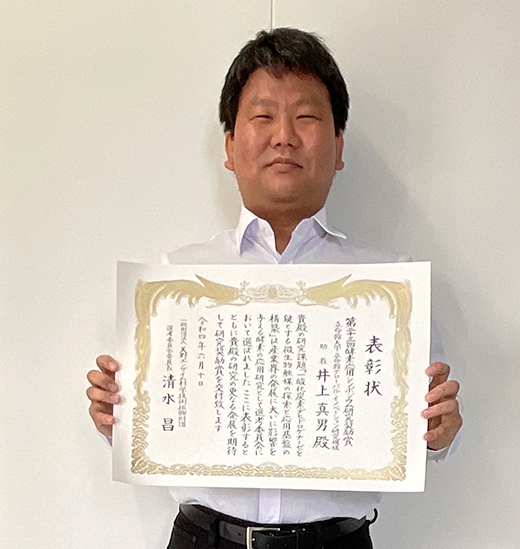 表彰状
第二十三回酵素応用シンポジウム研究奨励賞
立命館大学立命館グローバル・イノベーション研究機構
助教 井上真男殿
貴殿の研究課題「一酸化炭素デヒドロゲナーゼを
鍵とする微生物触媒の探索と応用基盤の
構築」は産業界の発展に大いに影響を
与える酵素の応用研究として選考委員会に
おいて選ばれましたここに表彰すると
ともに貴殿の研究の更なる発展を期待
して研究奨励賞を交付致します
令和四年六月十日
一般財団法人天野エンザイム科学技術振興財団
選考委員会委員長 清水昌